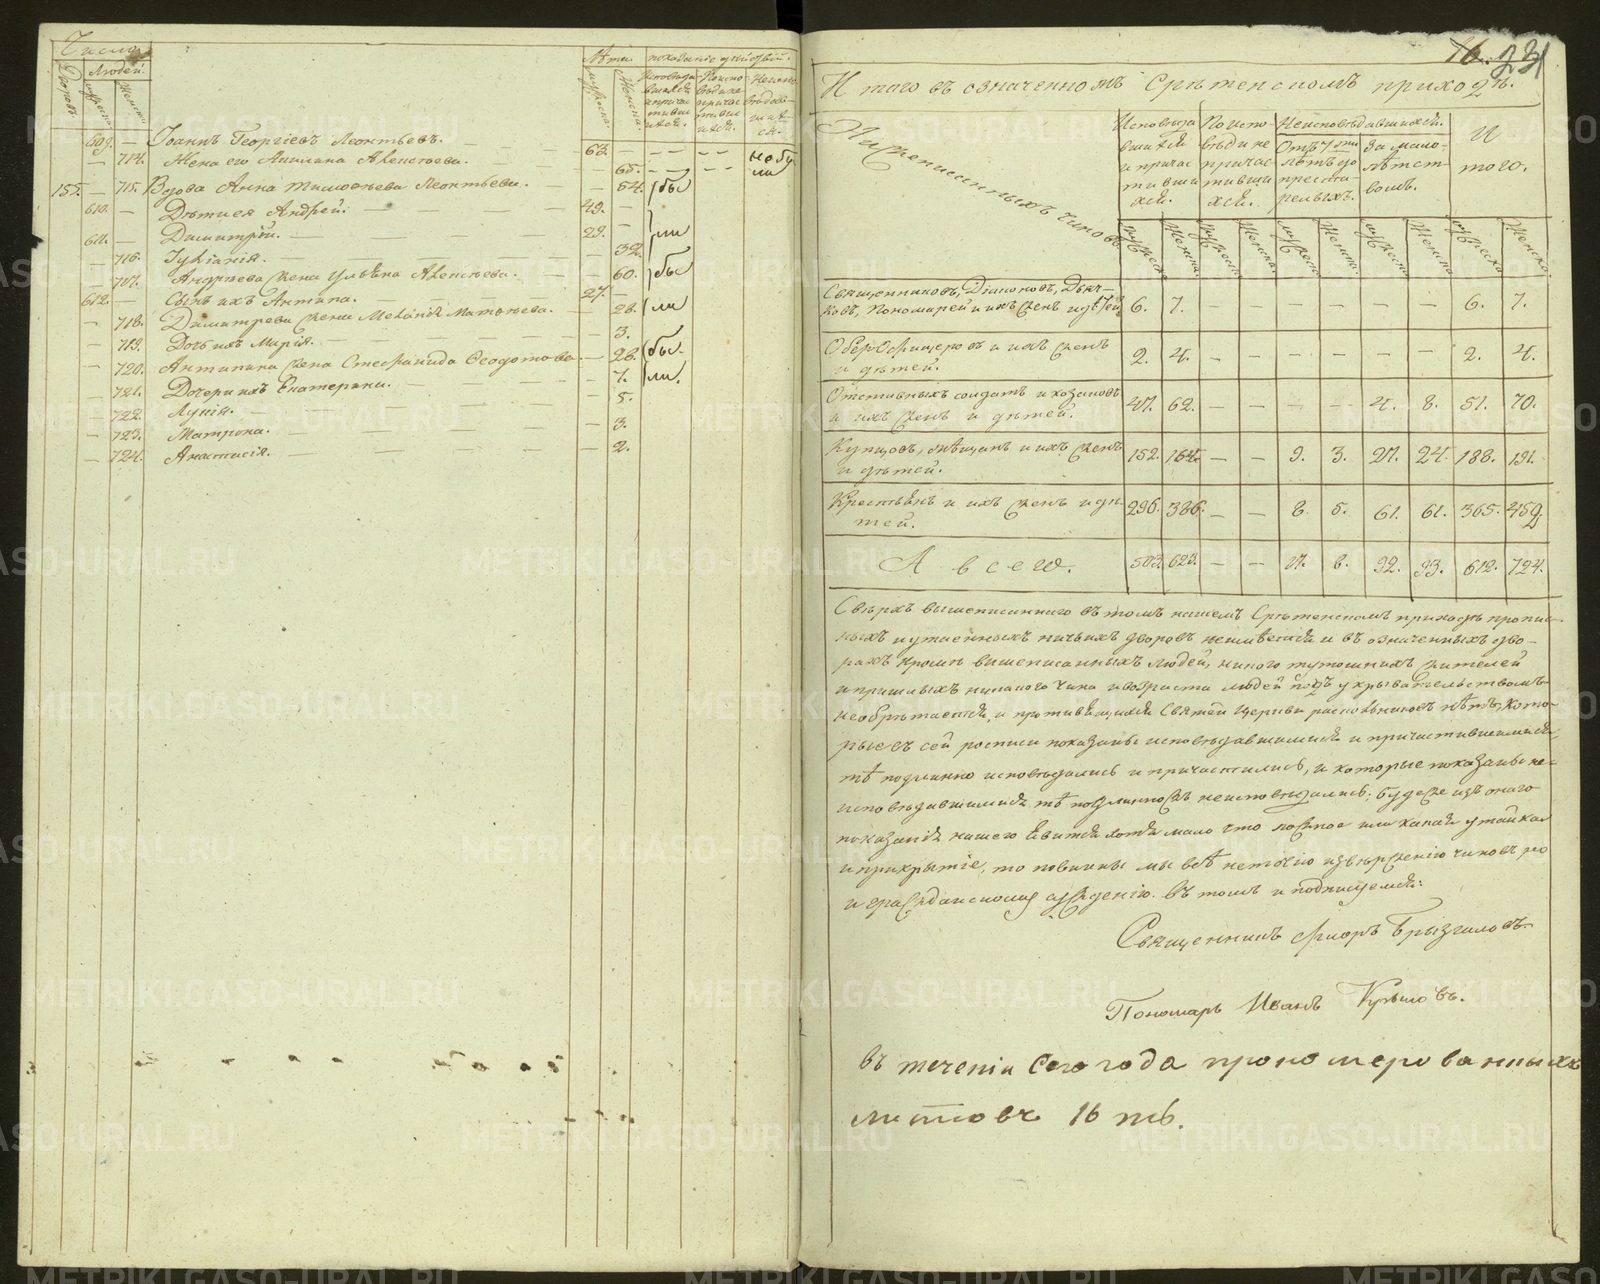 Число
Людей
Дворовъ
мужеска
женска
Лѣта
показаніе дѣйствій.
мужеска.
женска.
609. — Іоаннъ Георгіевъ Леонтьевъ. 63. — — — небы
— 714. Жена его Акилина Алексѣева. — 65. — — — ли
155. — 715. Вдова Анна Тимоѳѣева Леонтьева. — 54. бы
610. — Дѣти ея Андрей. 49. —
611. — Димитрій. 29. — ли
— 716. Іуліанія. 32.
— 717. Андреева жена Ульяна Алексѣева. — 60. бы
612. — Сынъ ихъ Антипа. 27. —
— 718. Димитрева жена Меланія Матвѣева. — 28. ли
— 719. Дочь ихъ Марія. — 3.
— 720. Антипина жена Стефанида Ѳеодотова. — 28. бы
— 721. Дочери ихъ Екатерина. — 7. ли.
— 722. Лукія. — 5.
— 723. Матрона. — 3.
— 724. Анастасія. — 2.
16. 231
Итого въ означенномъ Срѣтенскомъ приходѣ.
Нижеписанныхъ чиновъ
Исповѣда
вшихся
и причас
тивши
хся.
По испо-
вѣди не
причас
тивши
хся.
Неисповѣдавшихся.
Отъ 7ми
лѣтъ до
преста-
релыхъ.
За мало-
лѣтст-
вомъ.
И
того.
Священниковъ, Діаконовъ, Дьяч-
ковъ, Пономарей и ихъ женъ и дѣтей 6. 7. — — — — — — 6. 7.
Оберъ Офицеровъ и ихъ женъ
и дѣтей. 2. 4. — — — — — — 2. 4.
Отставныхъ солдатъ и козаковъ
и ихъ женъ и дѣтей. 47. 62. — — — — 4. 8. 51. 70.
Купцовъ, мѣщанъ и ихъ женъ
и дѣтей. 152. 164. — — 9. 3. 27. 24. 188. 191.
Крестьянъ и ихъ женъ и дѣ-
тей. 296. 386. — — 8. 5. 61. 61. 365. 452.
А всего. 503. 623. — — 17. 8. 92. 93. 612. 724.
Сверхъ вышеписаннаго въ томъ нашемъ Срѣтенскомъ приходѣ пропис-
ныхъ и утаенныхъ ничьихъ дворовъ неимѣется и въ означенныхъ дво-
рахъ кромѣ вышеписанныхъ людей, никого тутошнихъ жителей
и пришлыхъ никакого чина и возраста людей подъ укрывательствомъ
необрѣтается, и противящихся Святѣй Церкви раскольниковъ нѣтъ, кото-
рые въ сей росписи показаны исповѣдавшимися и причастившимися
тѣ подлинно исповѣдались и причастились, и которые показаны не-
исповѣдавшимися тѣ подлинножъ неисповѣдались; буде же изъ онаго
показанія нашего явится хотя мало что ложное или какая утайка
и прикрытіе, то повинны мы всѣ неточію изверженію чиновъ но
и гражданскому сужденію. въ томъ и подписуемся:
Священникъ Флоръ Брызгаловъ
Пономарь Иванъ Крыловъ.
въ теченіи Сего года прономерованныхъ
листовъ 16 ть.